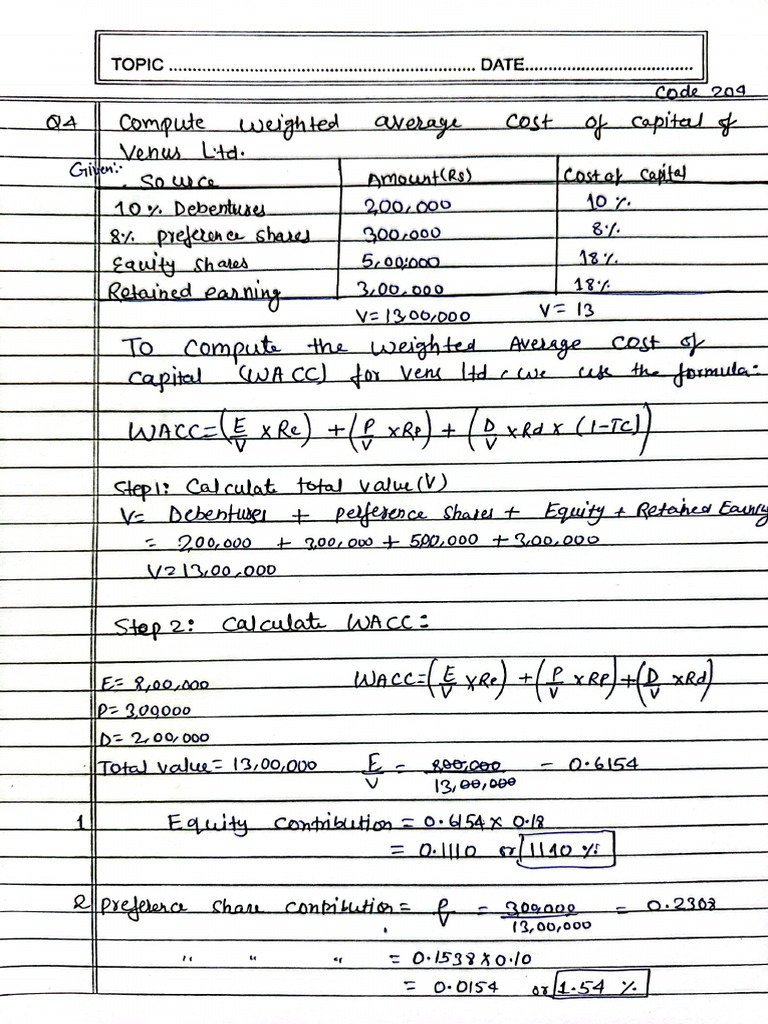 TOPIC ........................................................ DATE..................................
Code 204
Q4 Compute weighted average cost of capital of
Venus Ltd.
Given:-
Source Amount(Rs) Cost of Capital
10% Debentures 200,000 10%
8% preference shares 300,000 8%
Equity shares 5,00,000 18%
Retained earning 3,00,000 18%
V=1300,000 V=13
To compute the weighted Average cost of
capital (WACC) for Vens ltd, we use the formula:-
WACC=(E/V × Re) + (P/V × Rp) + (D/V × Rd × (1-TC))
Step1: Calculate total value(V)
V= Debentures + perference shares + Equity + Retained Earning
= 200,000 + 300,000 + 500,000 + 3,00,000
V=13,00,000
Step 2: Calculate WACC:
E= 8,00,000 WACC=(E/V × Re) + (P/V × RP) + (D/V × Rd)
P= 300000
D= 2,00,000
Total value= 13,00,000 E/V = 800,000/13,00,000 = 0.6154
1 Equity contribution = 0.6154 × 0.18
= 0.1110 or 1110 %
2 Preference share contribution = P/V = 300,000/13,00,000 = 0.2308
" " " = 0.1538 × 0.10
= 0.0154 or 1.54 %